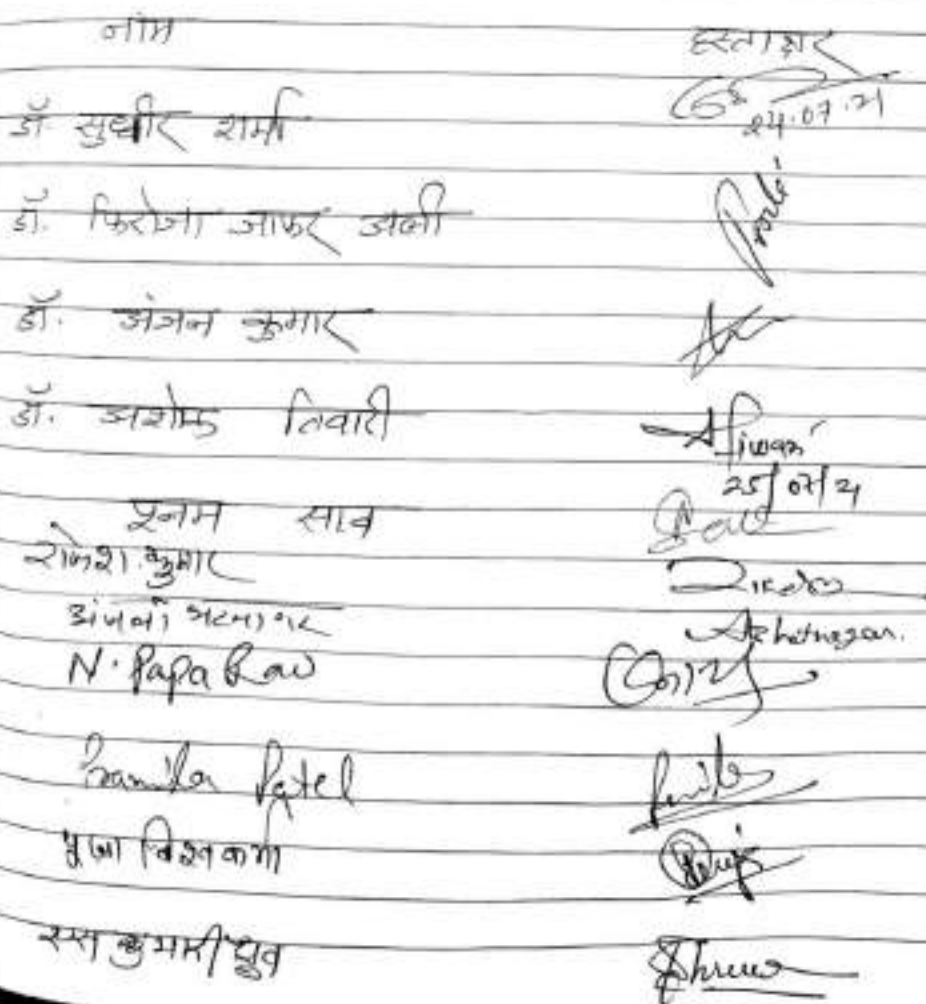 नाम हस्ताक्षर
डॉ. सुधीर शर्मा
24.07.21
डॉ. फिरोजा जाफर अली
डॉ. अंजन कुमार
डॉ. अशोक तिवारी ATiwari
25/07/21
पूनम साव
राकेश कुमार
अंजली भटनागर Abhatnagar.
N. Papa Rao
Pramila Patel
पूजा विश्वकर्मा
कुमारी ध्रुव Dhruw